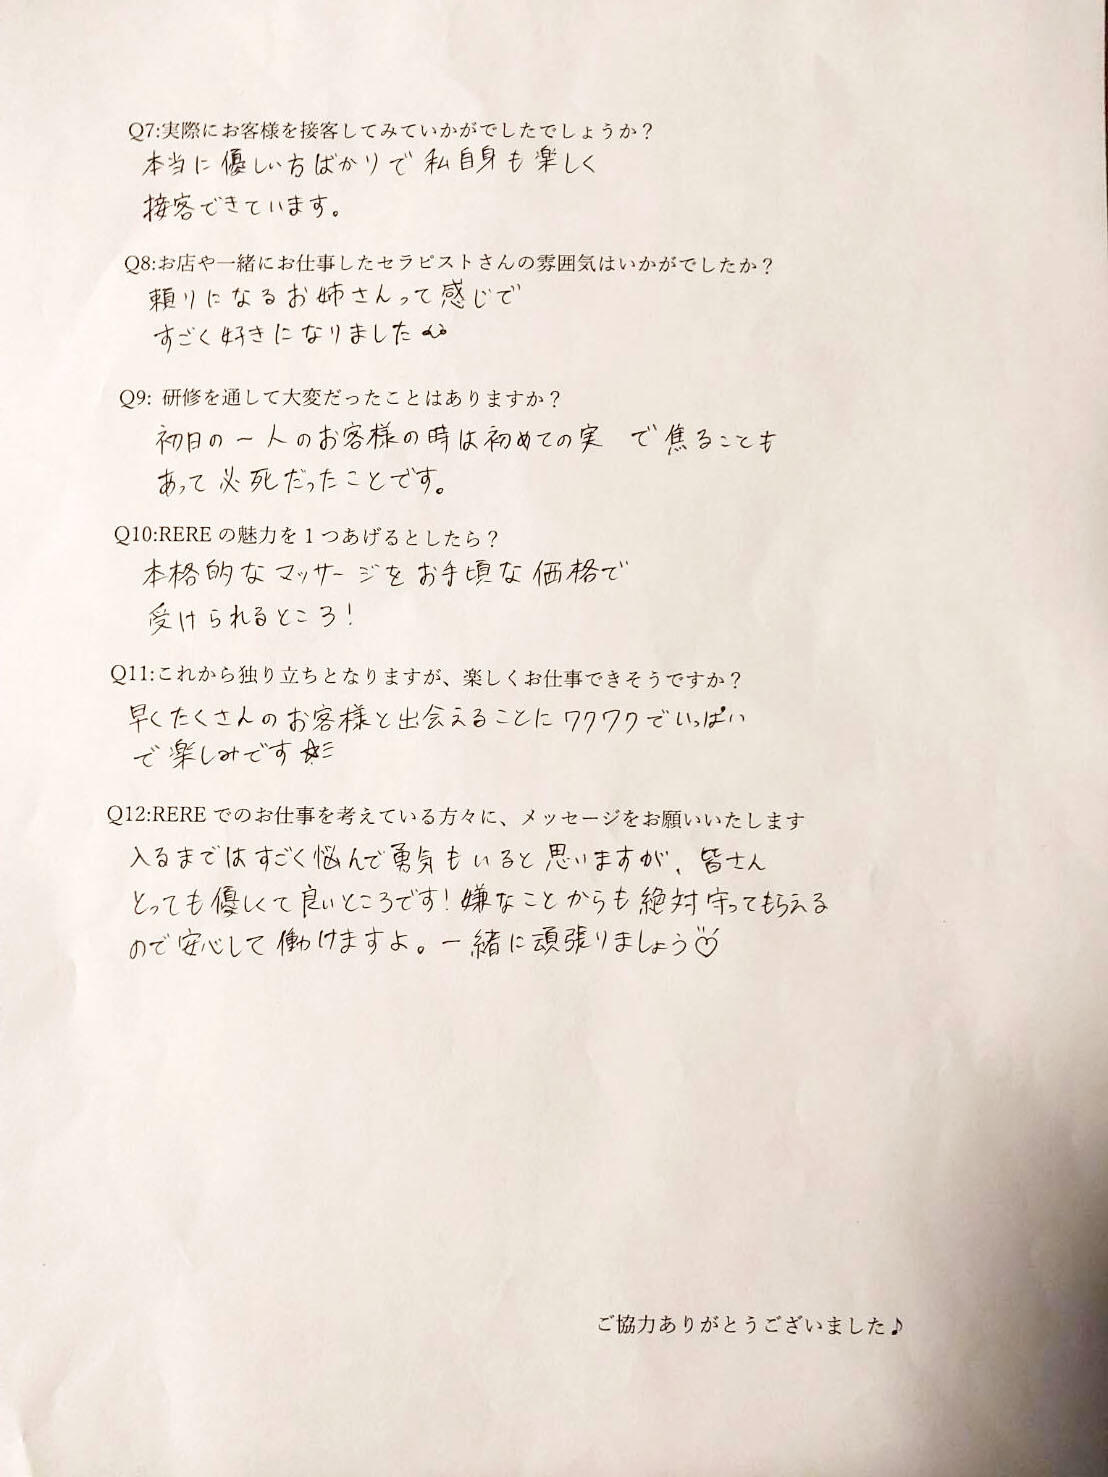 Q7:実際にお客様を接客してみていかがでしたでしょうか？
本当に優しい方ばかりで私自身も楽しく
接客できています。
Q8:お店や一緒にお仕事したセラピストさんの雰囲気はいかがでしたか？
頼りになるお姉さんって感じで
すごく好きになりました
Q9: 研修を通して大変だったことはありますか？
初日の一人のお客様の時は初めての実　で焦ることも
あって必死だったことです。
Q10:RERE の魅力を 1 つあげるとしたら？
本格的なマッサージをお手頃な価格で
受けられるところ!
Q11:これから独り立ちとなりますが、楽しくお仕事できそうですか？
早くたくさんのお客様と出会えることにワクワクでいっぱい
で楽しみです☆彡
Q12:RERE でのお仕事を考えている方々に、メッセージをお願いいたします
入るまではすごく悩んで勇気もいると思いますが、皆さん
とっても優しくて良いところです!嫌なことからも絶対守ってもらえる
ので安心して働けますよ。一緒に頑張りましょう♡
ご協力ありがとうございました♪